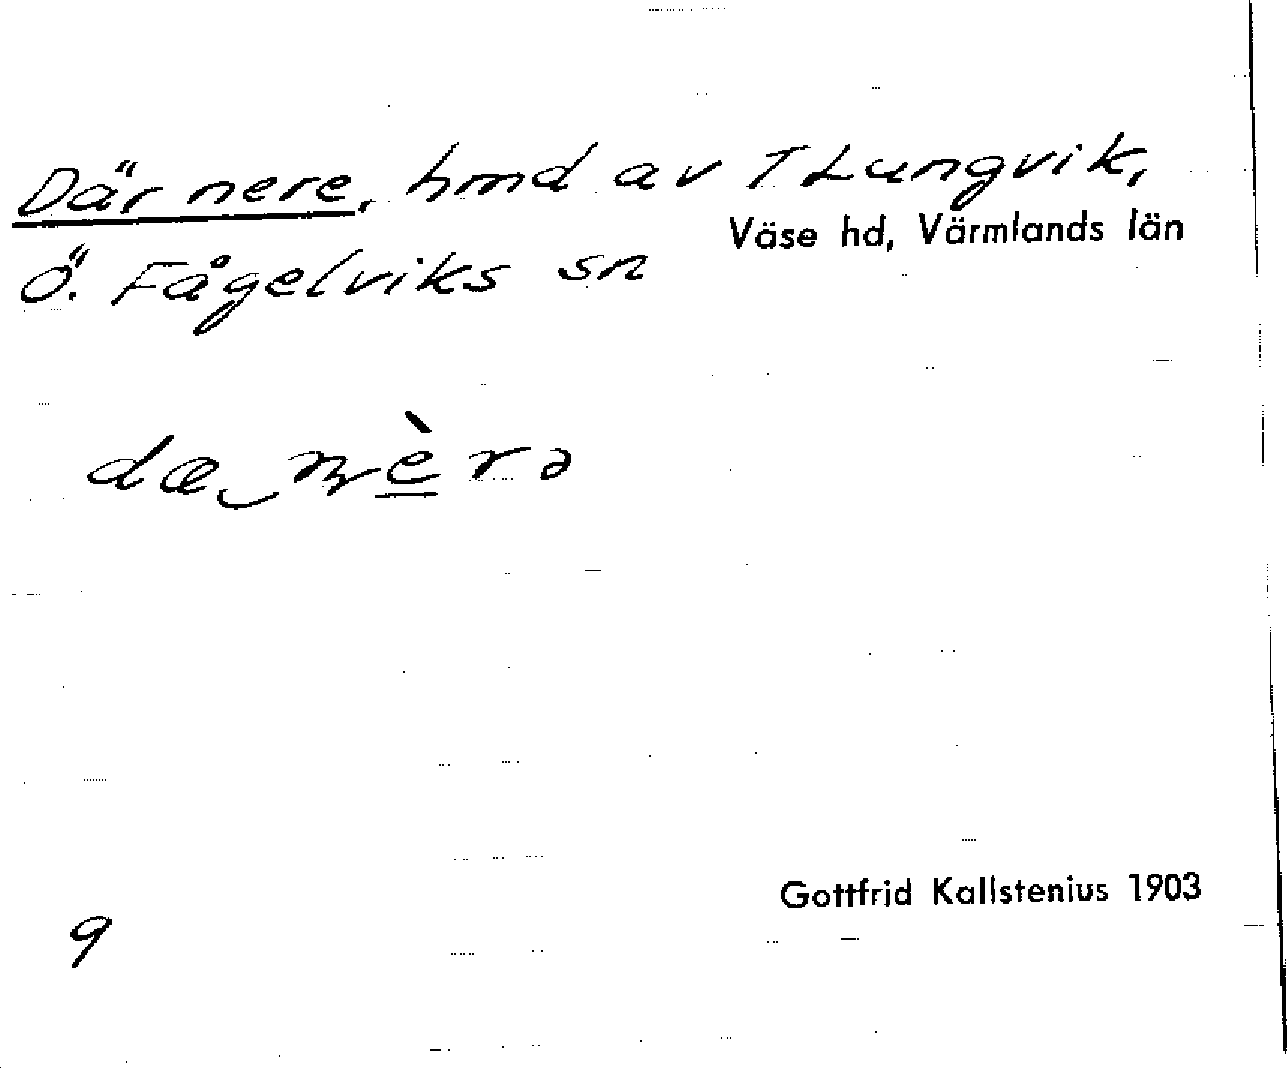 Där nere, hmd av T Lungvik,
Väse hd, Värmlands län
Ö. Fågelviks sn
dæ‿nèrə
Gottfrid Kallstenius 1903
9